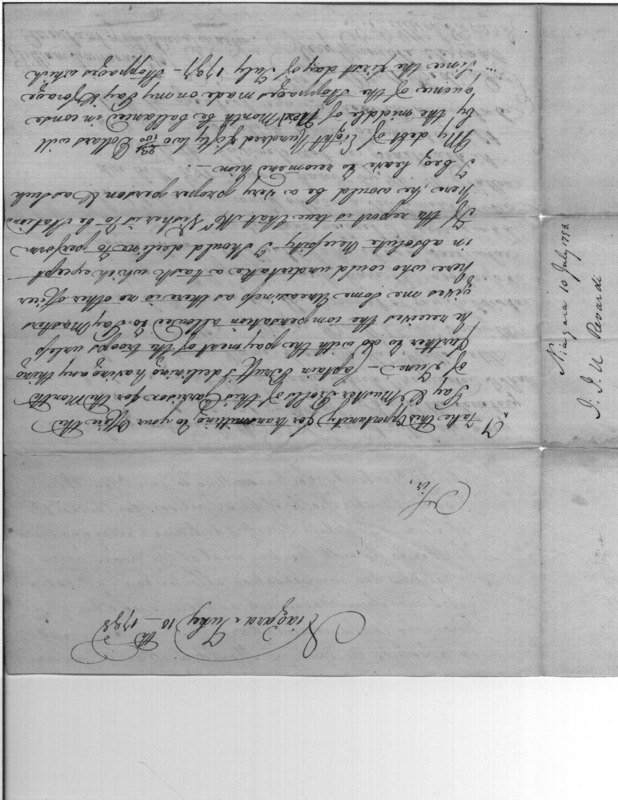 Niagara July 10th 1798
Sir,
I Take this Oppertunity for transmitting to your Office the
Pay & Muster Rolls of this Garrison for the Month
of June – Captain Bruff's declining having any thing
further to do with the payment of the troops unless
he receives the compensation allowed to Pay Masters
gives me some Uneasiness as there is no other officer
here who could undertake a task which except
in absolute Necessity I should decline to perform
If the report is true that Mr Visher is to be Station'd
here, he would be a very proper person & as such
I beg leave to recomend him. –
My debt of Eight hundred fifty two 23/100 Dollars will
by the middle of Next Month be ballanced in conse
quence of the Stoppages made on my Pay & forage
Since the first day of July 1797 – Stoppages which
Niagara 10 July 1798
J. J. U Rivardi